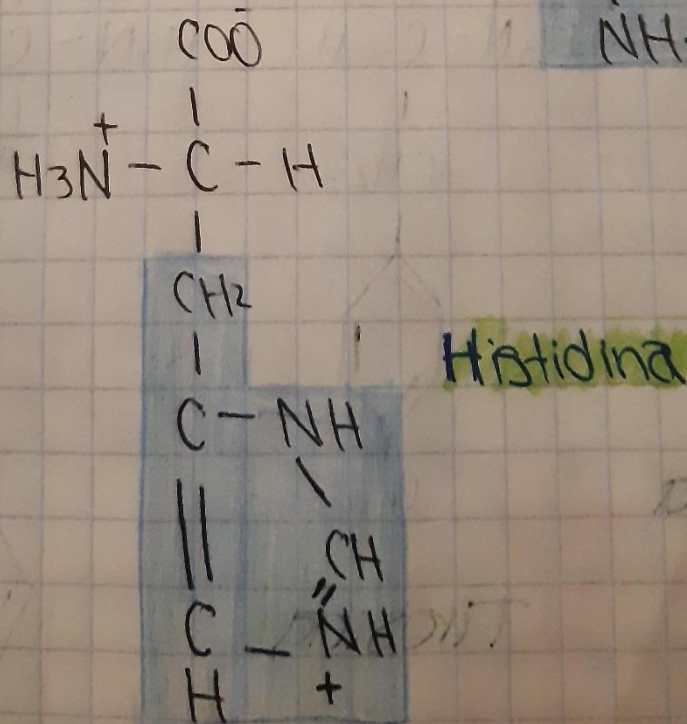 COO⁻
NH
H3N⁺ – C – H
CH2
Histidina
C – NH
CH
C – NH
H +